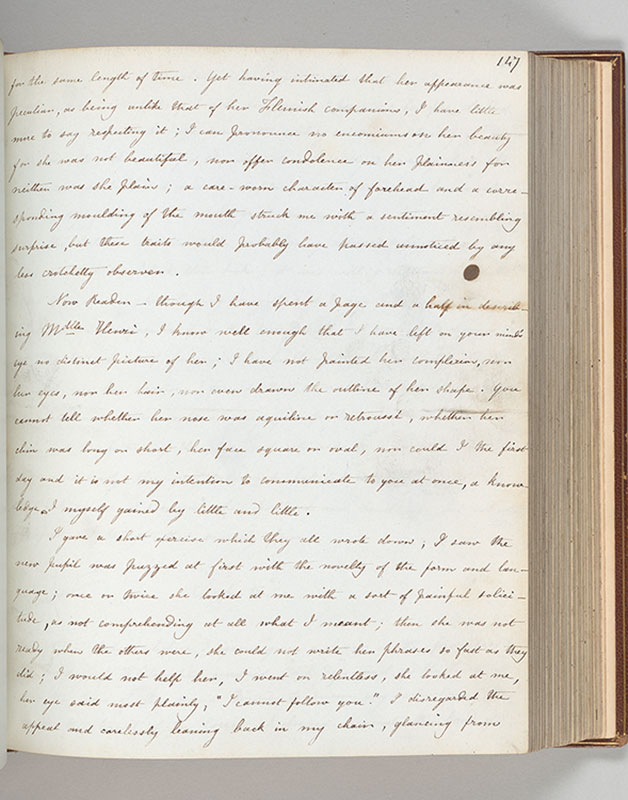 147
for the same length of time. Yet having intimated that her appearance was
peculiar, as being unlike that of her Flemish companions, I have little
more to say respecting it; I can pronounce no encomiums on her beauty
for she was not beautiful, nor offer condolence on her plainness for
neither was she plain; a care-worn character of forehead and a corre-
sponding moulding of the mouth struck me with a sentiment resembling
surprise, but these traits would probably have passed unnoticed by any
less crotchetty observer.
Now Reader — though I have spent a page and a half in describ-
ing Mdlle Henri, I know well enough that I have left on your mind's
eye no distinct picture of her; I have not painted her complexion, nor
her eyes, nor her hair, nor even drawn the outline of her shape. You
cannot tell whether her nose was aquiline or retroussé, whether her
chin was long or short, her face square or oval, nor could I the first
day and it is not my intention to communicate to you at once, a know-
ledge I myself gained by little and little.
I gave a short exercise which they all wrote down; I saw the
new pupil was puzzed at first with the novelty of the form and lan-
guage; once or twice she looked at me with a sort of painful solici-
tude, as not comprehending at all what I meant; then she was not
ready when the others were, she could not write her phrases so fast as they
did; I would not help her, I went on relentless, she looked at me,
her eye said most plainly, "I cannot follow you." I disregarded the
appeal and carelessly leaning back in my chair, glancing from